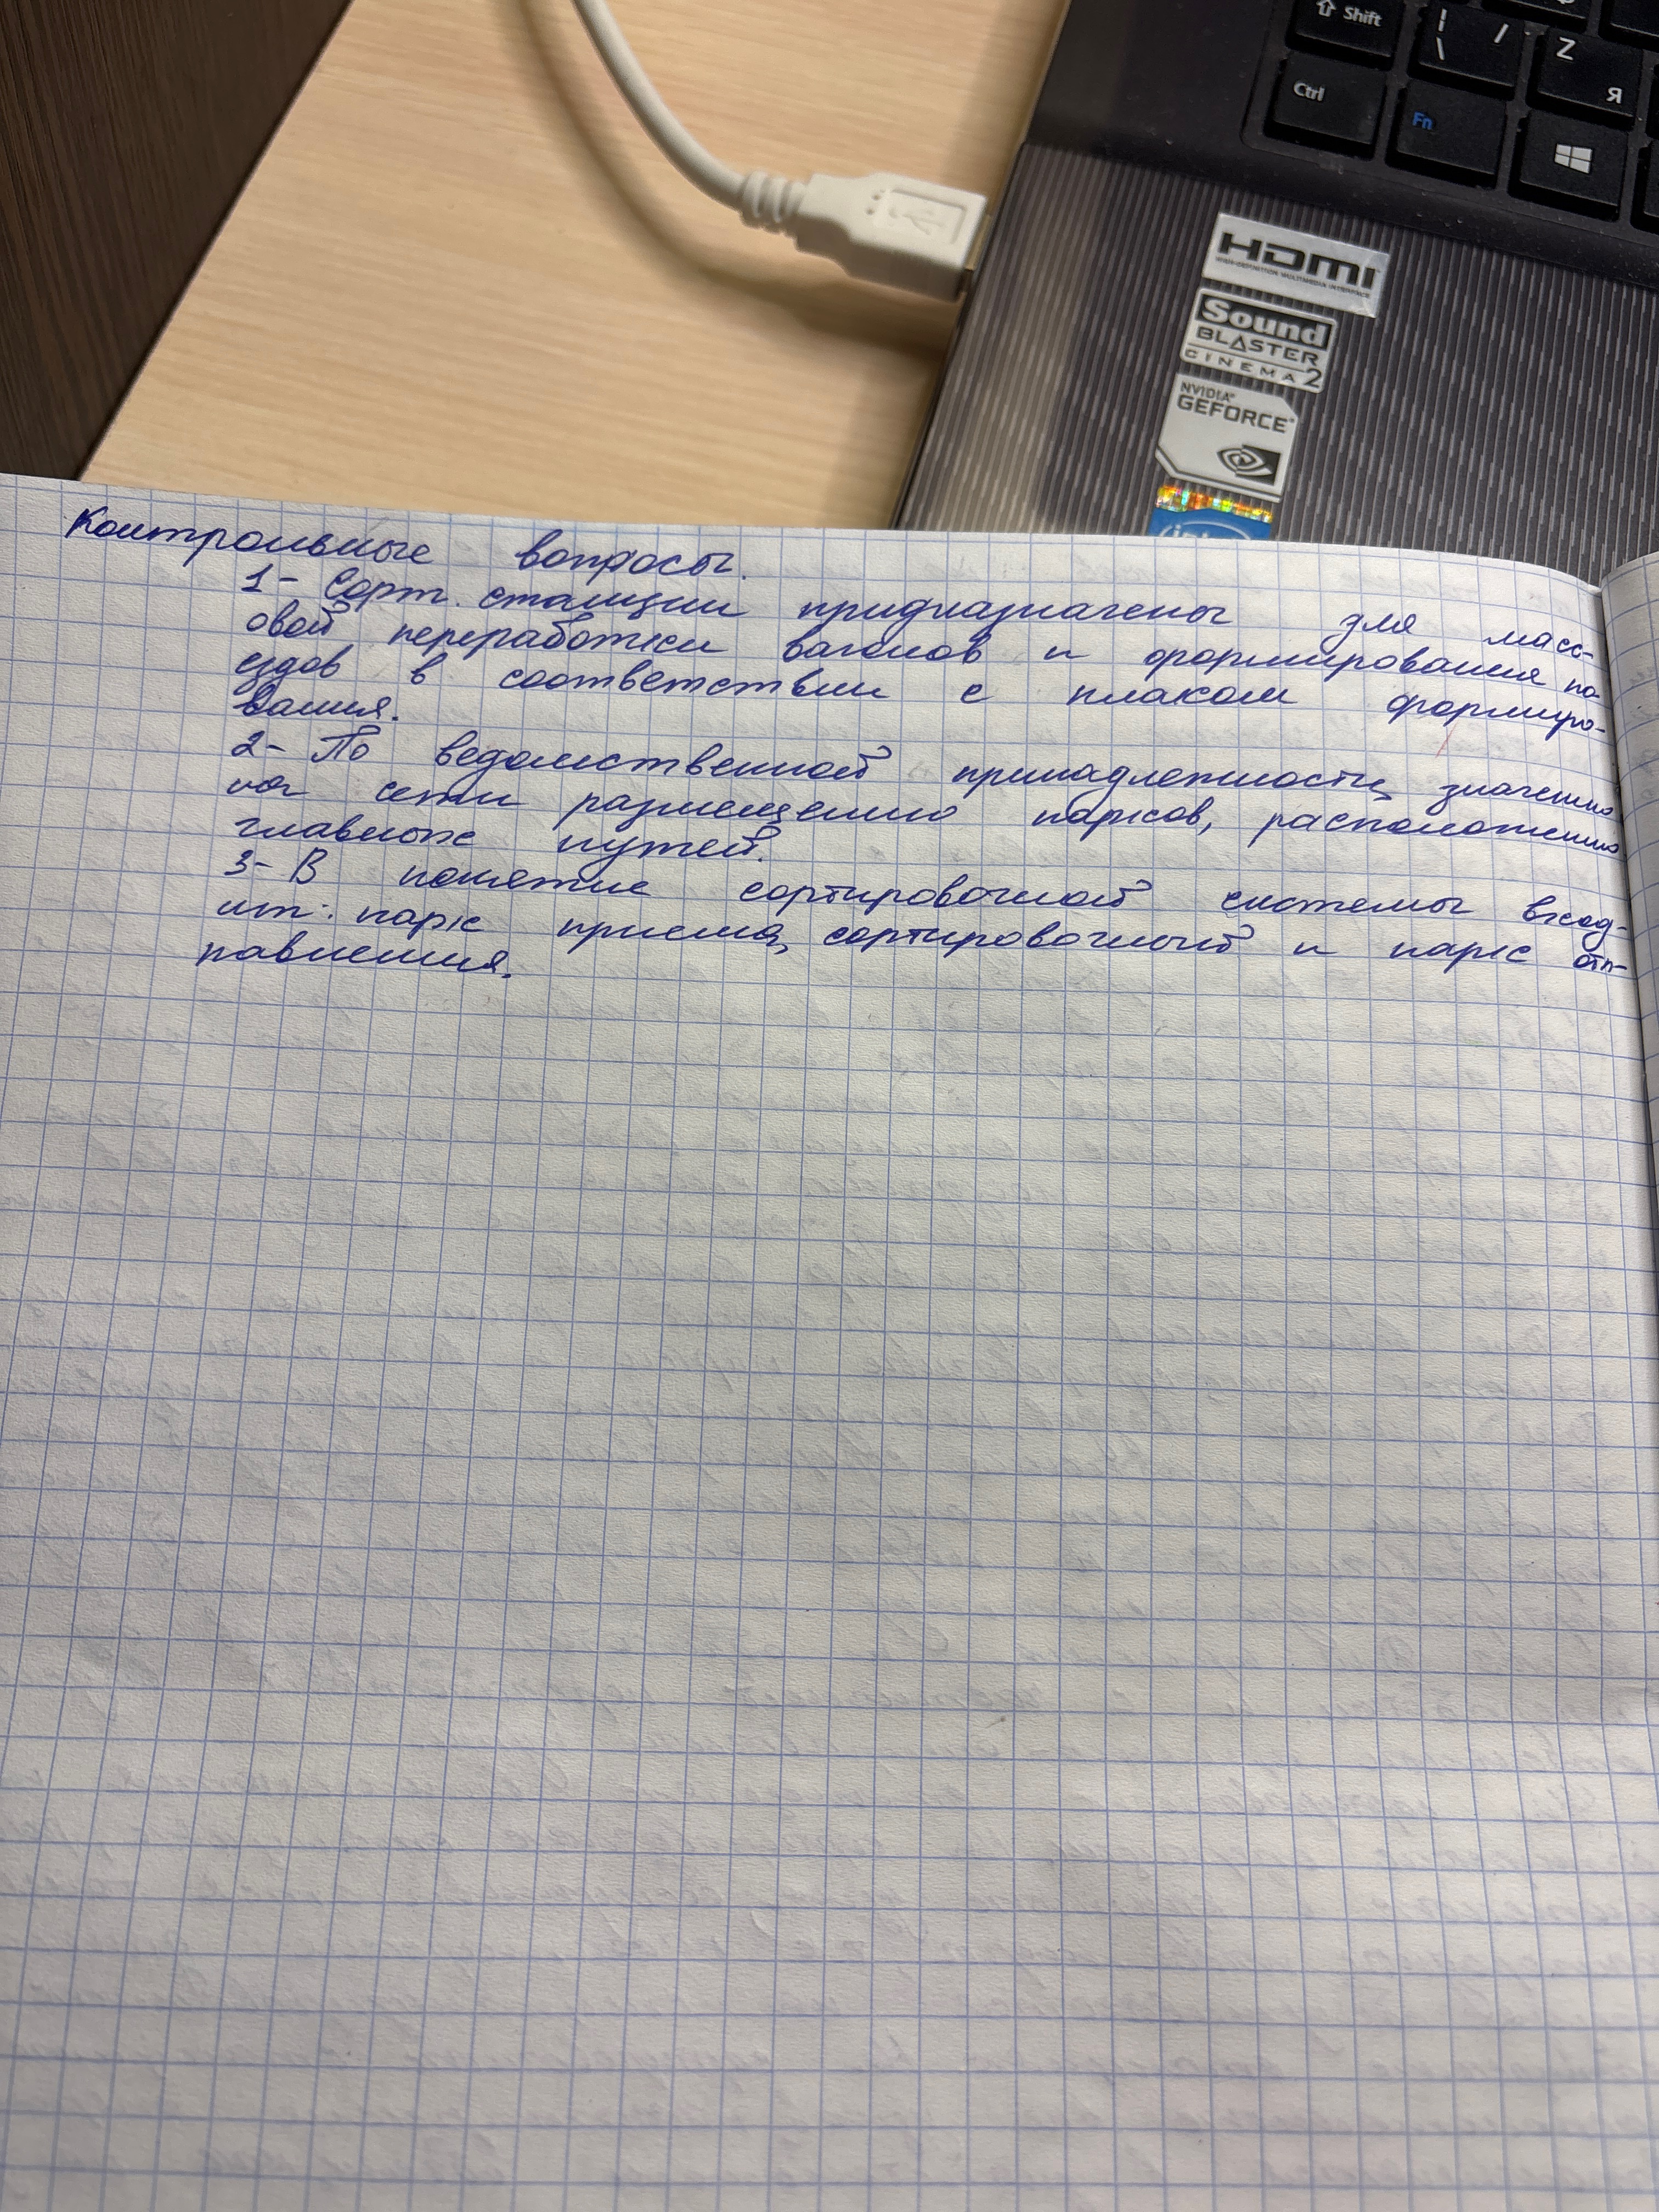 Shift
| /
\
Z
Я
Ctrl
Fn
HDMI
HIGH-DEFINITION MULTIMEDIA INTERFACE
Sound
BLASTER
CINEMA 2
NVIDIA
GEFORCE
intel
Контрольные вопросы.
1- Сорт. станции придназначены для масс-
овой переработки вагонов и формирования по-
ездов в соответствии с планом формиро-
вания.
2- По ведомственной принадлежности, значению
на сети размещению парков, расположению
главных путей.
3- В понятие сортировочной системы вход-
ит: парк приема, сортировочный и парк отп-
равления.